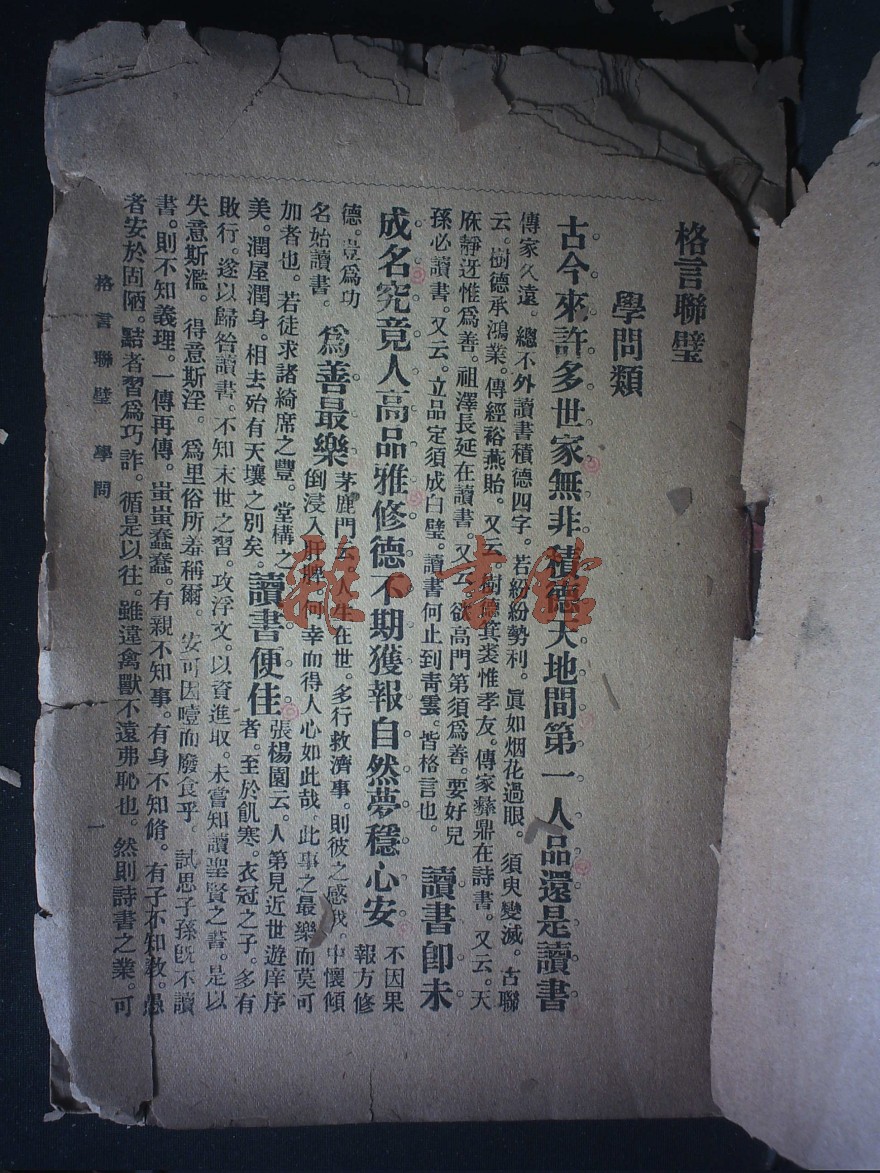 格言聯璧
學問類
古今來許多世家無非積德天地間第一人品還是讀書
傳家久遠。總不外讀書積德四字。若紛紛勢利。眞如烟花過眼。須臾變滅。古聯
云。樹德承鴻業。傳經裕燕貽。又云。樹德箕裘惟孝友。傳家彝鼎在詩書。又云。天
庥靜迓惟爲善。祖澤長延在讀書。又云。欲高門第須爲善。要好兒
孫必讀書。又云。立品定須成白璧。讀書何止到靑雲。皆格言也。 讀書卽未
成名究竟人高品雅修德不期獲報自然夢穩心安 不因果
報方修
德。豈爲功
名始讀書。 爲善最樂 茅鹿門云。人生在世。多行救濟事。則彼之感我。中懷傾
倒。浸入肝脾。何幸而得人心如此哉。此事之最樂而莫可
加者也。若徒求諸綺席之豐。堂構之
美。潤屋潤身。相去殆有天壤之別矣。 讀書便佳 張楊園云。人第見近世遊庠序
者。至於飢寒。衣冠之子。多有
敗行。遂以歸咎讀書。不知末世之習。攻浮文。以資進取。未嘗知讀聖賢之書。是以
失意斯濫。得意斯淫。爲里俗所羞稱爾。安可因噎而廢食乎。試思子孫旣不讀
書。則不知義理。一傳再傳。蚩蚩蠢蠢。有親不知事。有身不知脩。有子不知敎。愚
者安於固陋。黠者習爲巧詐。循是以往。雖違禽獸不遠弗恥也。然則詩書之業。可
格言聯璧 學問 一
雅·書館